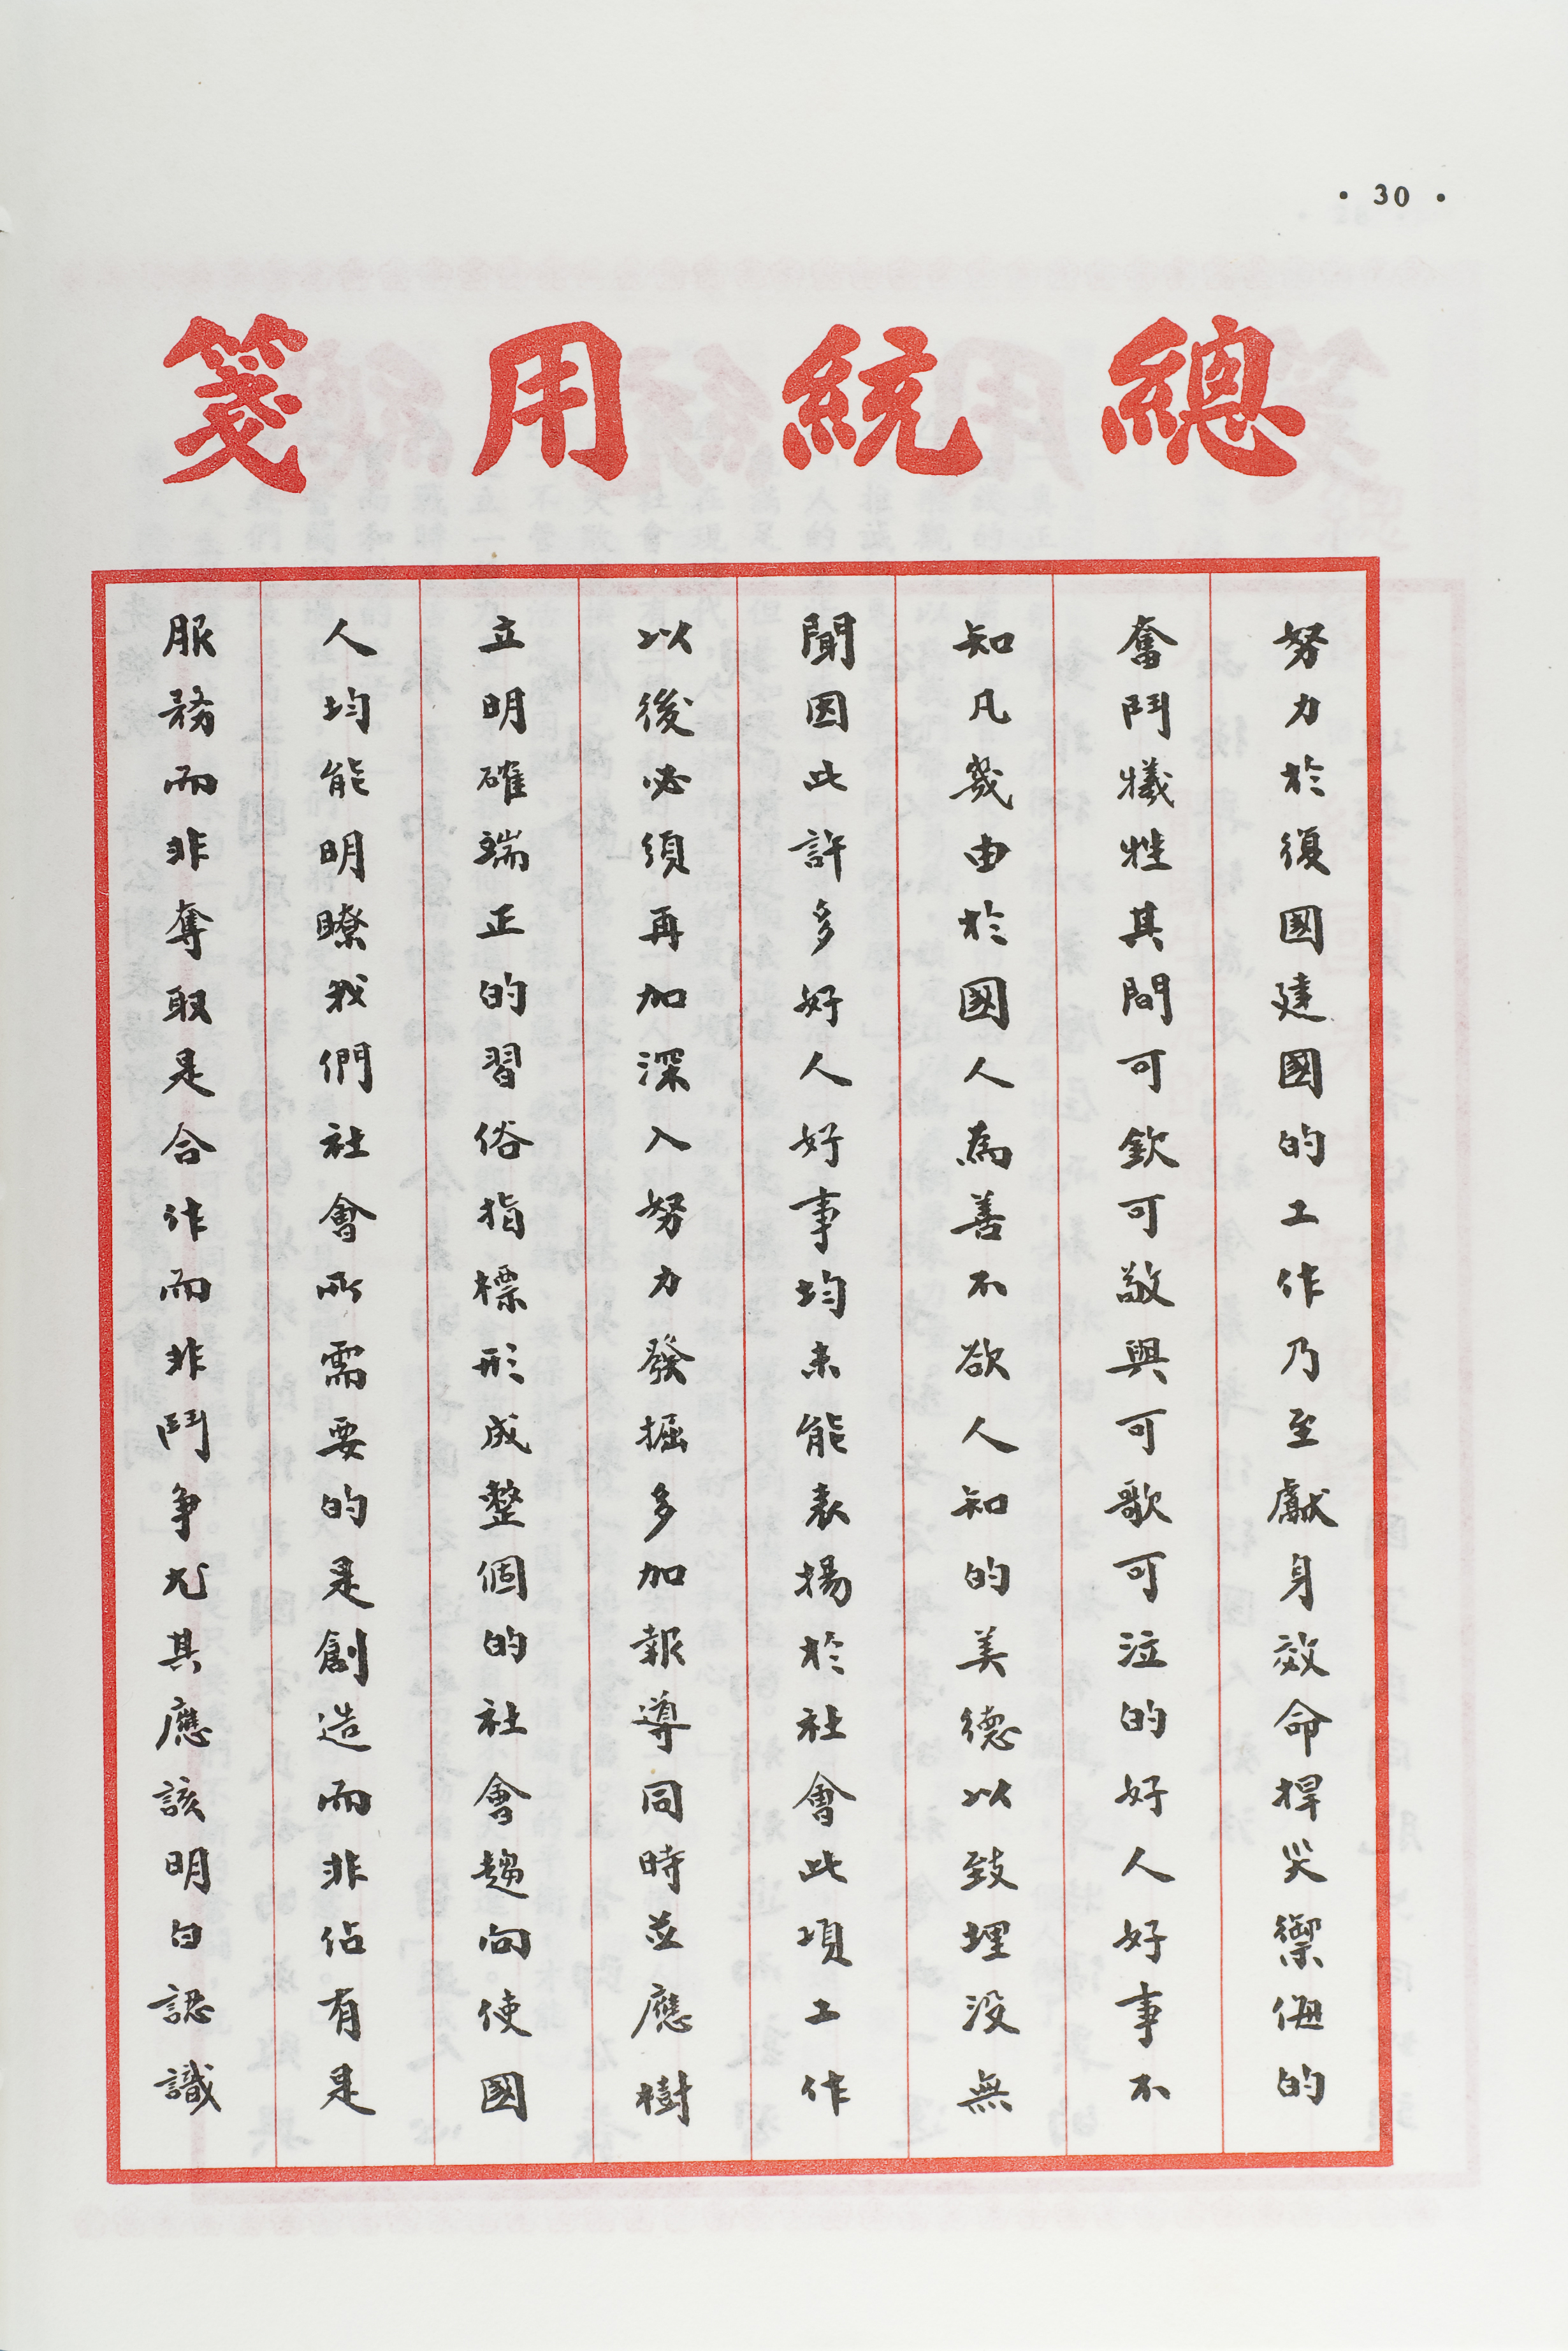 • 30 •
總統用箋
努力於復國建國的工作乃至獻身效命捍災禦侮的
奮鬥犧牲其間可欽可敬與可歌可泣的好人好事不
知凡幾由於國人為善不欲人知的美德以致埋没無
聞因此許多好人好事均未能表揚於社會此項工作
以後必須再加深入努力發掘多加報導同時並應樹
立明確端正的習俗指標形成整個的社會趨向使國
人均能明瞭我們社會所需要的是創造而非佔有是
服務而非奪取是合作而非鬥爭尤其應該明白認識